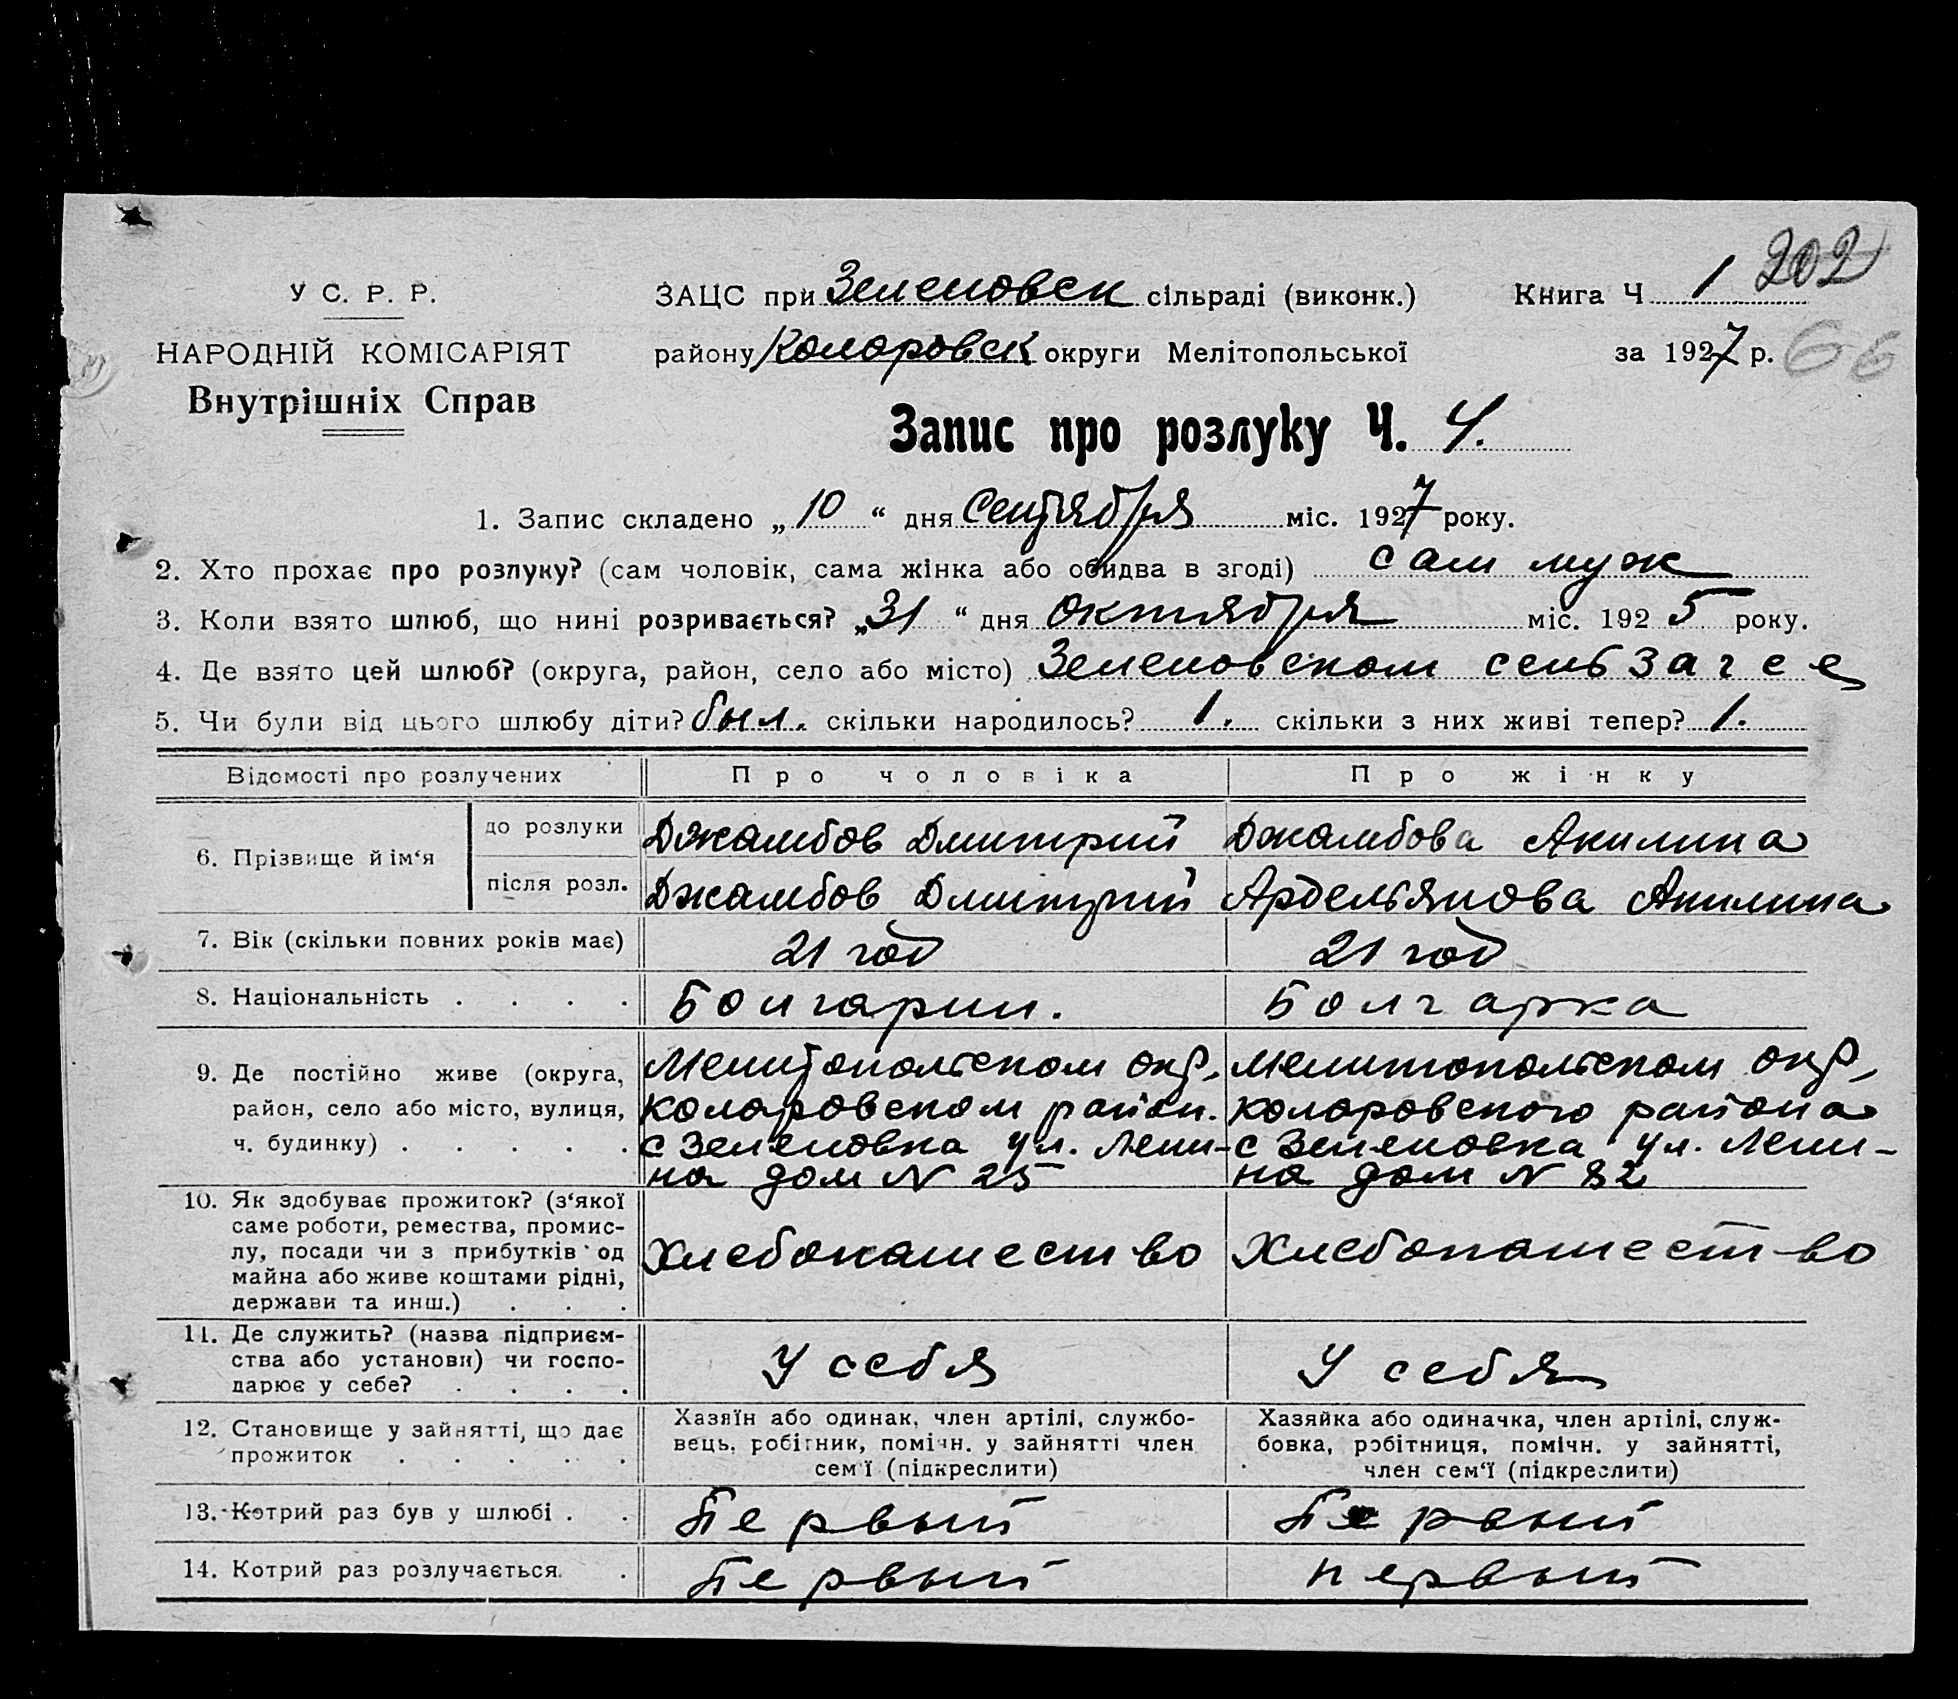 202
У С. Р. Р.
ЗАЦС при Зеленовск сільраді (виконк.) Книга Ч 1
НАРОДНІЙ КОМІСАРІЯТ
району Коларовск округи Мелітопольської за 1927 р.
Внутрішніх Справ
Запис про розлуку Ч. 4.
1. Запис складено „10“ дня Сентября міс. 1927 року.
2. Хто прохає про розлуку? (сам чоловік, сама жінка або обидва в згоді) сам муж
3. Коли взято шлюб, що нині розривається? „31“ дня Октября міс. 1925 року.
4. Де взято цей шлюб? (округа, район, село або місто) Зеленовском сельзагсе
5. Чи були від цього шлюбу діти? был. скільки народилось? 1. скільки з них живі тепер? 1.
Відомості про розлучених Про чоловіка Про жінку
6. Прізвище й ім‘я до розлуки Джамбов Дмитрий Джамбова Акилина
після розл. Джамбов Дмитрий Ардельянова Акилина
7. Вік (скільки повних років має) 21 год 21 год
8. Національність . . . . Болгарин. Болгарка
9. Де постійно живе (округа, Мелитопольском окр, Мелитопольском окр,
район, село або місто, вулиця, Коларовском район. Коларовского района
ч. будинку) . . . . . с Зеленовка ул. Лени- с Зеленовка ул. Лени-
на дом N 25 на дом N 82
10. Як здобуває прожиток? (з‘якої
саме роботи, ремества, промис-
лу, посади чи з прибутків од Хлебопашество Хлебопашество
майна або живе коштами рідні,
держави та инш.) . . .
11. Де служить? (назва підприєм-
ства або установи) чи госпо- У себя У себя
дарює у себе? . . . .
12. Становище у зайнятті, що дає Хазяїн або одинак, член артілі, службо- Хазяйка або одиначка, член артілі, служ-
прожиток . . . . . вець, робітник, помічн. у зайнятті член бовка, робітниця, помічн. у зайнятті,
сем‘ї (підкреслити) член сем‘ї (підкреслити)
13. Котрий раз був у шлюбі . . Первый Первый
14. Котрий раз розлучається . Первый первый